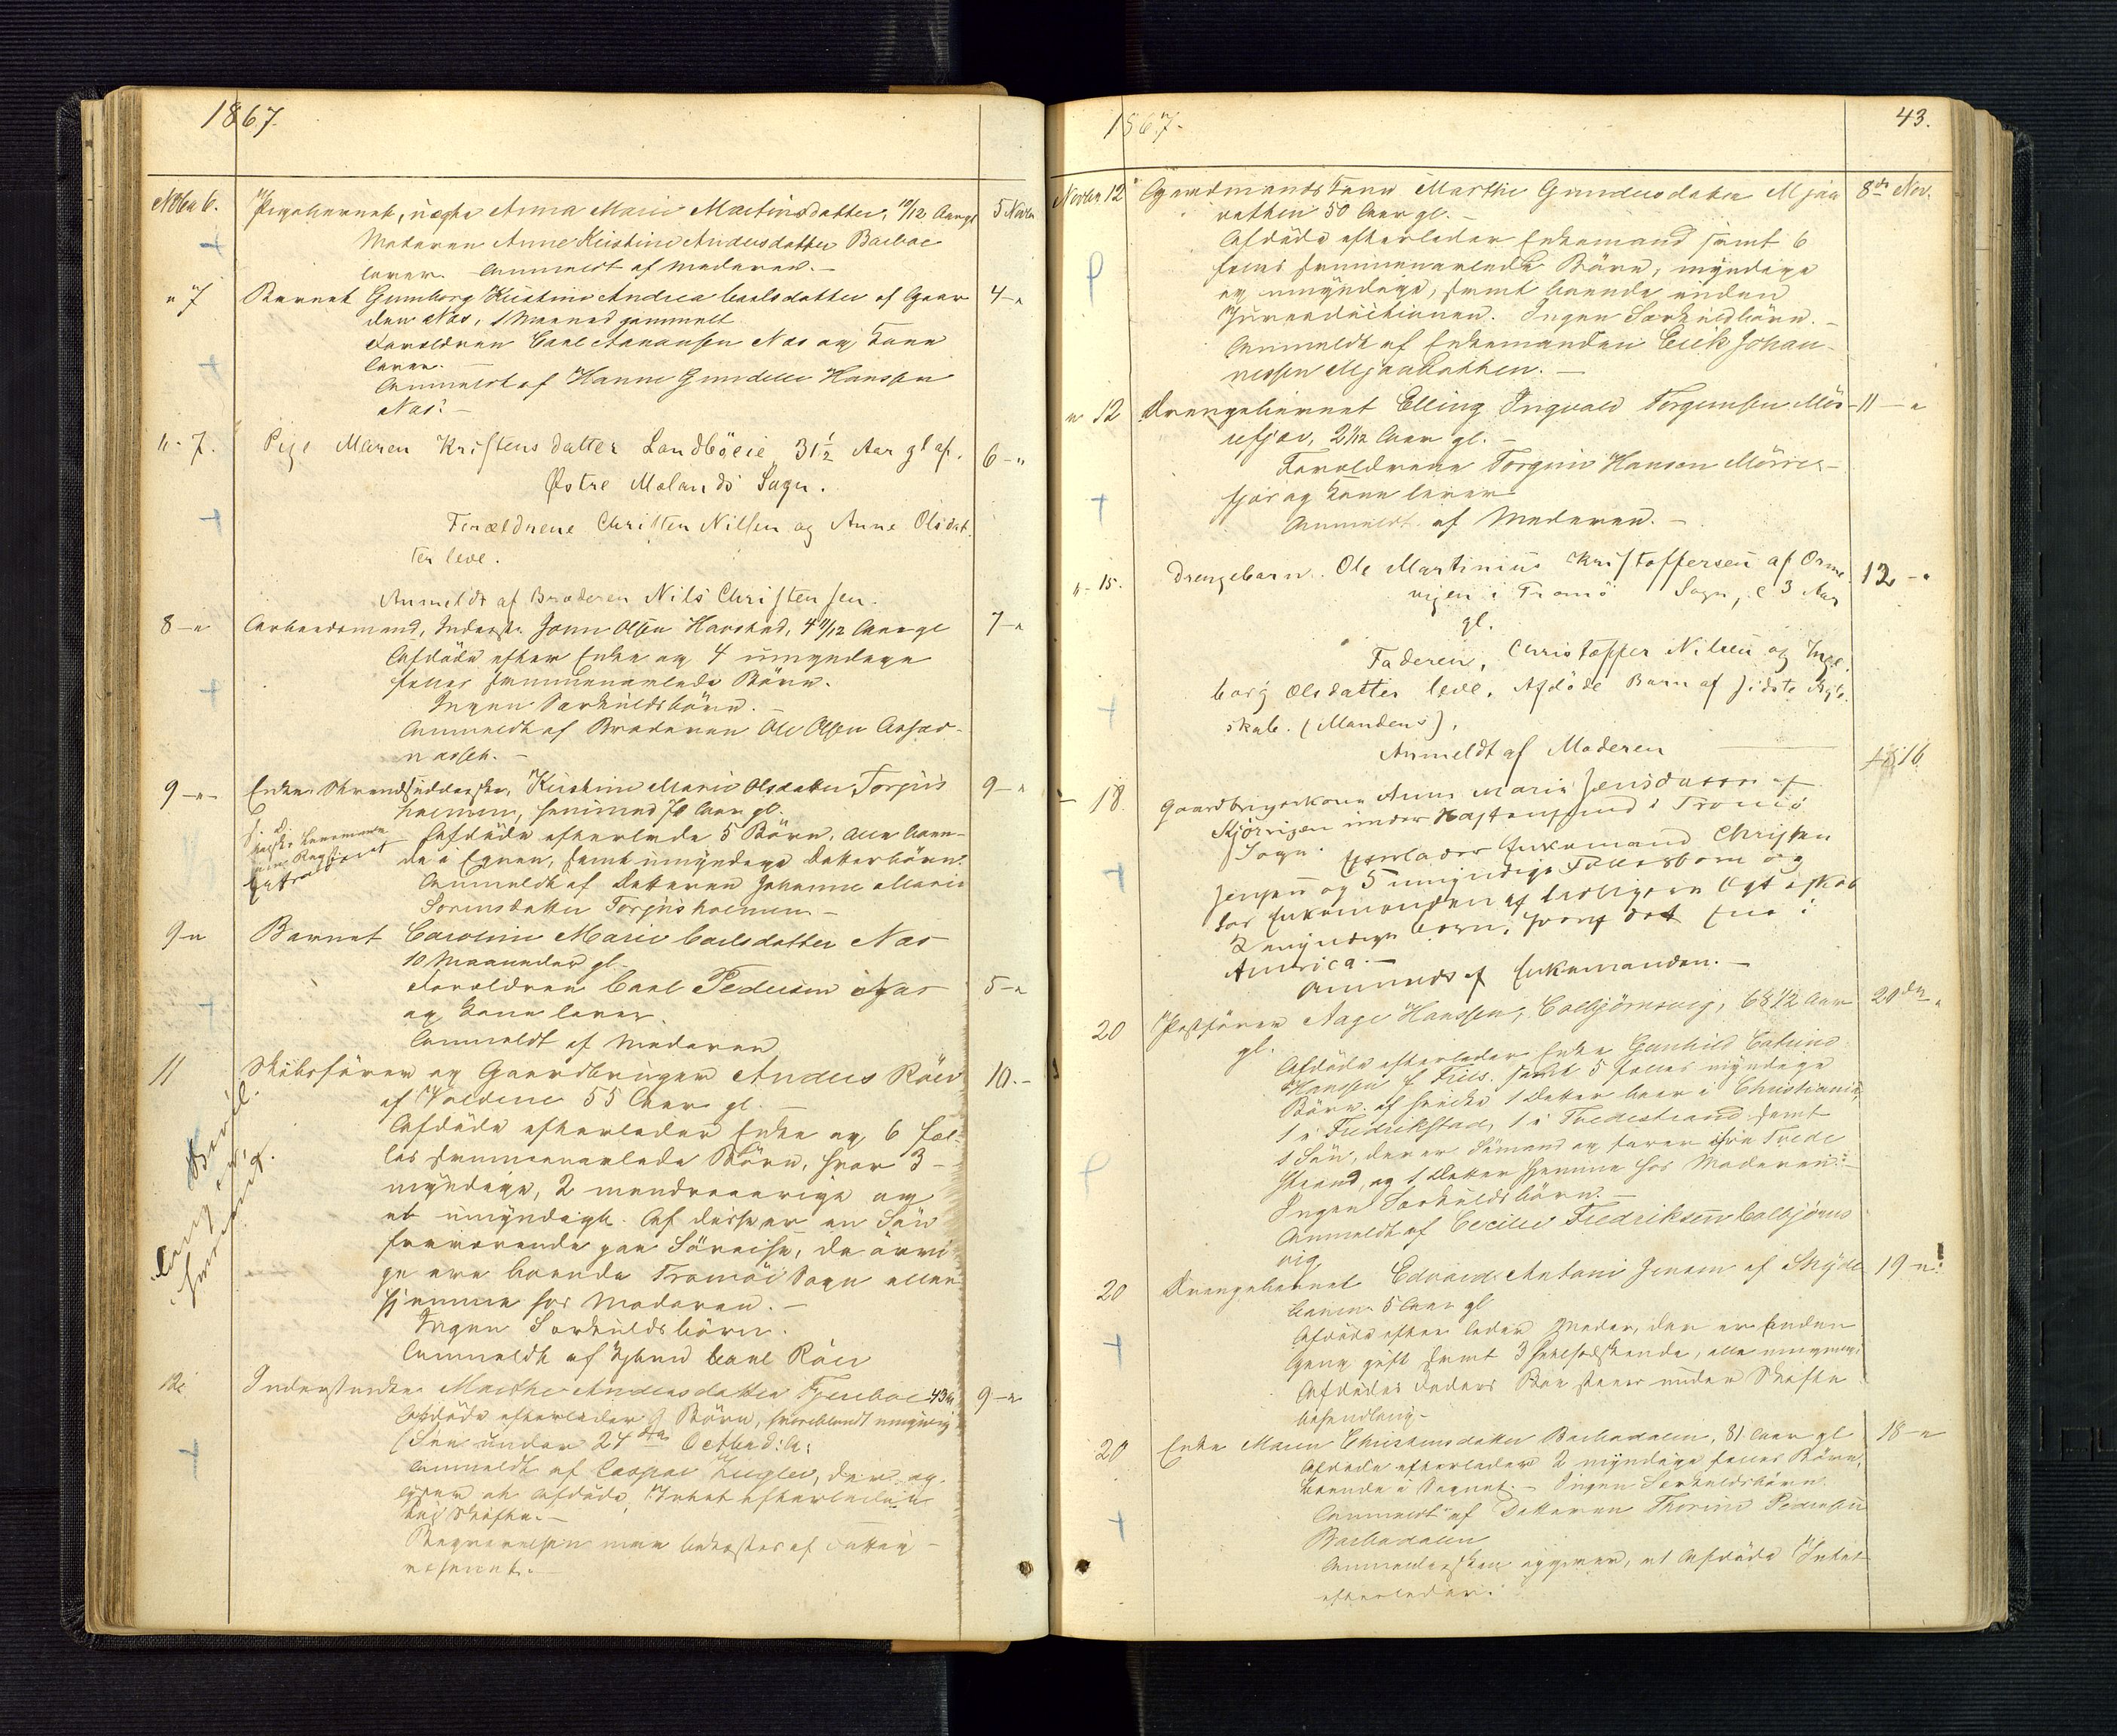 1867.
Novbr 6. Pigebarnet, uægte Anna Marie Martinsdatter, 10/12 Aar gl 5 Novbr
Moderen Anne Kristine Andersdatter Barboe
lever. Anmeldt af Moderen. -
" 7 Barnet Gumborg Kristine Andrea Carlsdatter af Gaar 4 - "
den Næs, 1 Maaned gammelt
Forældrene Carl Aanonsen Næs og Kone
lever. -
Anmeldt af Hanne Gundelle Hanssen
Næs. -
" 7. Pige Maren Kristensdatter Landböeie 31 1/2 Aar gl af. 6 - "
Østre Molands Sogn.
Forældrene Christen Nilsen og Anne Olsdat-
ter leve.
Anmeldt af Broderen Nils Christensen.
8 - " Arbeidsmand, Inderst Jonn Olsen Havstad, 4 /12 Aar gl 7 - "
Afdöde efter Enke og 4 umyndige
felles sammenavlede Börn.
Ingen Særkuldsbörn. -
Anmeldt af Broderen Ole Olsen
9 - " Enke Kirstine Marie Olsdatter Torjus 9 - "
holmen, 70 Aar gl.
Afdöde efterlade 5 Börn, alle boen-
de i Egnen, samt umyndige Datterbörn.
Anmeldt af Datteren Johanne Marie
Sörensdatter Torjusholmen -
9 - " Barnet Caroline Marie Carlsdatter Næs
10 Maaneder gl.
Forældrene Carl Pedersen Næs 5 - "
og Kone lever
Anmeldt af Moderen
11 Skibsförer og Gaardbruger Anders Röer 10. -
af 55 Aar gl. -
Afdöde efterlader Enke og 6 fæl-
les sammenavlede Börn, hvor 3 -
myndige, 2 mindreaarige og
et umyndigt. Af disse er en Sön
fraværende paa Söreise, de övri-
ge ere boende Tromöe Sogn eller
hjemme hos Moderen. -
Ingen Særkuldsbörn.
Anmeldt af Carl Röer
12 Inderstenke Marthe Andersdatter Tjenboe 43 Aar 9 - "
Afdöde efterlader 9 Börn, hvoriblandt umyndig
(Sön under 24de October d: A:
Anmeldt af Caspar Ziegler, der op-
giver at Afdöde Intet efterladen
til Skifte. -
Begravelsen maa bekostes af Fattig -
væsenet. -
1867. 43.
Novbr 12 Gaardmandskone Marthe Gundersdatter Mjaa 8de Nov.
vatten 50 Aar gl. -
Afdöde efterlader Enkemand samt 6
felles sammenavlede Börn, myndige
og umyndige, samt boende inden
Jurisdictionen. Ingen Særkuldbörn. -
Anmeldt af Enkemanden Erik Johan-
nessen Mjaavatten. -
" 12 Drengebarnet Elling Ingvald Torgersen Mör- 11 - "
refjær, 2 1/12 Aar gl. -
Forældrene Torgrim Hansen Mörre-
fjær og Kone lever
Anmeldt af Moderen. -
" - 15. Drengebarn. Ole Martinius Kristoffersen af Orme 12 - "
vigen i Tromö Sogn, c 3 Aar
gl.
Faderen, Christoffer Nilsen og Inge-
borg Olsdatter leve. Afdöde Barn af sidste Ægte-
skab. (Mandens).
Anmeldt af Moderen
- 18. Gaardbrugerkone Anne Maria Jensdatter af 16
Kjörvigen under Hastensund i Tromö
Sogn. Efterlader Enkemand Christen
Jensen og 5 umyndige Fællesbörn og
har Enkemanden af tidligere Ægteskab
2 myndige börn, hvoraf det ene i
America. -
Anmeldt af Enkemanden. -
20 Postförer Aage Hanssen, Colbjörnsvig, 68 1/2 Aar 20de "
gl.
Afdöde efterlader Enke Gunhild Catrine
Hanssen f. Friis. samt 5 fælles myndige
Börn, af hvilke 1 Datter boer i Christiania,
1 i Fredrikstad, 1 i Tvedestrand samt
1 Sön, der er Sömand og farer ifra Tvede
strand, og 1 Datter hjemme hos Moderen.
Ingen Særkuldsbörn. -
Anmeldt af Cecilie Fredriksen Colbjörns
vig
20 Drengebarnet Edvard Antoni Jensen af 19 - "
5 Aar gl
Afdöde efterlader Moder, der er anden
Gang gift samt 3 Helsödskende, alle umyndige
Afdödes Faders Bo staaer under Skifte
behandling -
20 Enke Maren Christensdatter Barbodalen, 81 Aar gl 18 - "
Afdöde efterlader 2 myndige fælles Börn,
boende i Sognet. - Ingen Særkuldsbörn
Anmeldt af Datteren Thorine Pedersen
Barbodalen
Anmeldersken opgiver, at Afdöde Intet
efterlader.